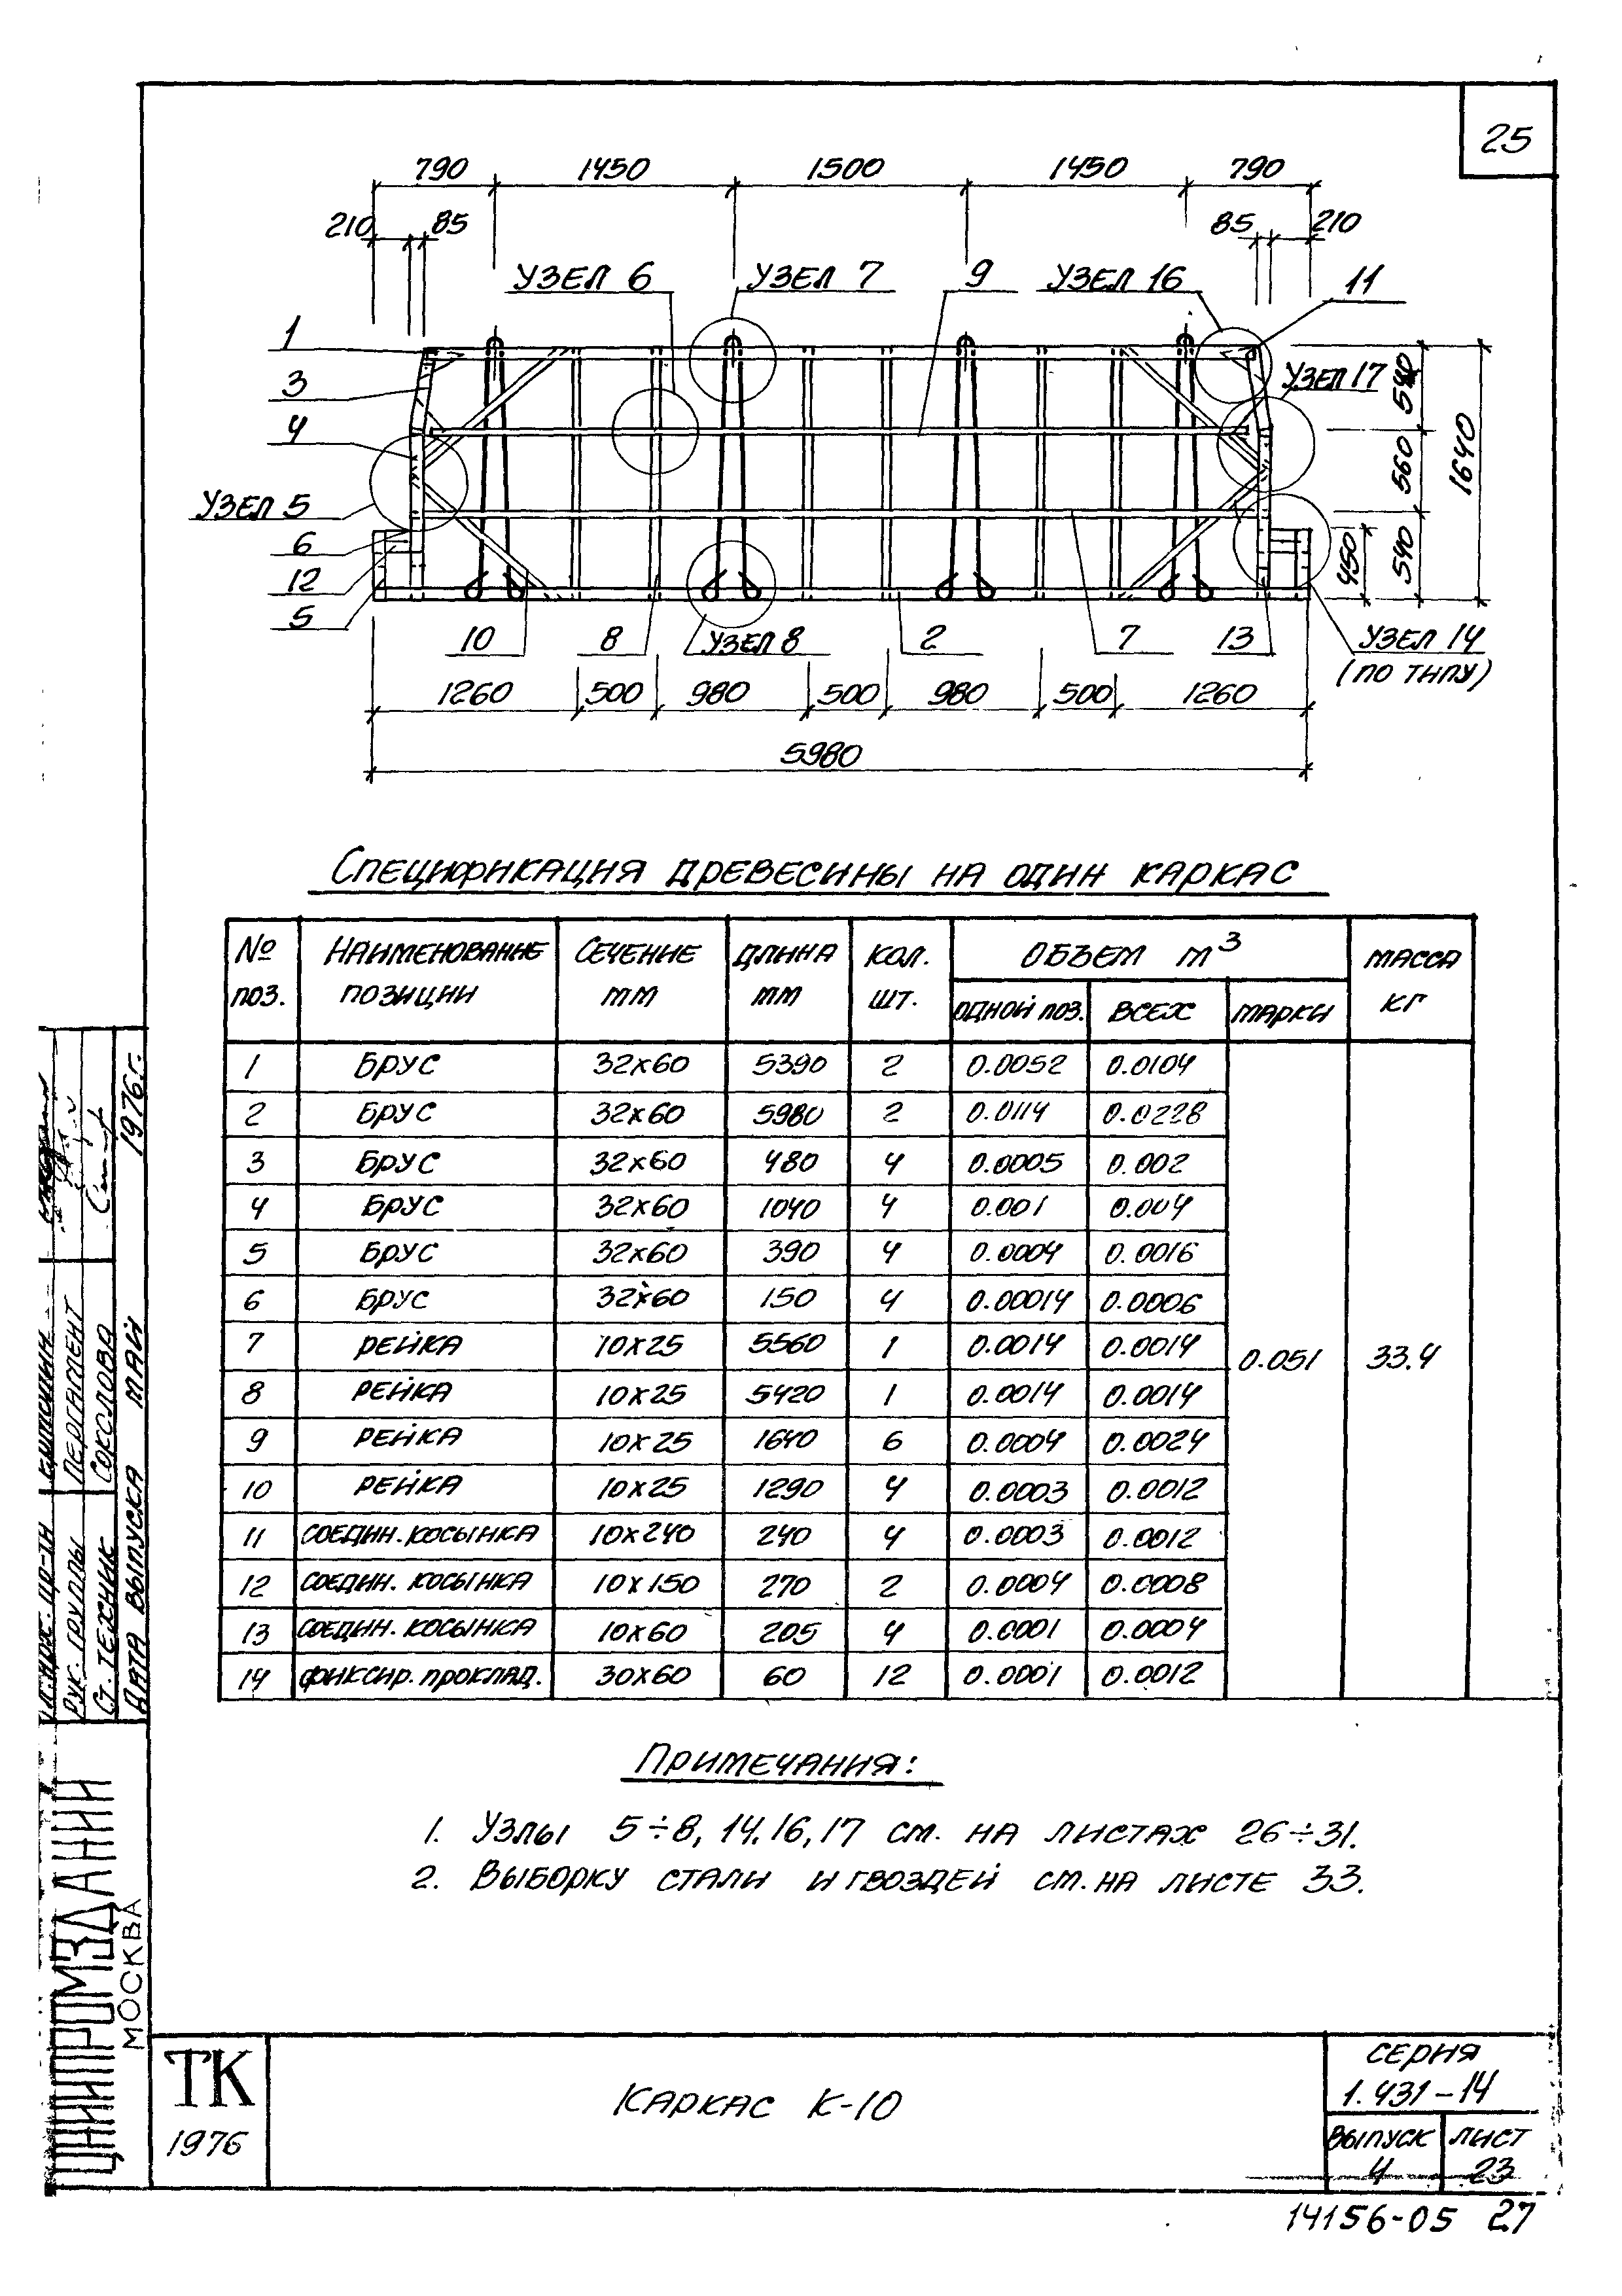 25
790 1450 1500 1450 790
210 85 85 210
УЗЕЛ 6 УЗЕЛ 7 9 УЗЕЛ 16 11
1
3
4
УЗЕЛ 17
540
560
540
450
1640
УЗЕЛ 5
6
12
5
10 8 УЗЕЛ 8 2 7 13 УЗЕЛ 14
(ПО ТИПУ)
1260 500 980 500 980 500 1260
5980
СПЕЦИФИКАЦИЯ ДРЕВЕСИНЫ НА ОДИН КАРКАС
№ ПОЗ. НАИМЕНОВАНИЕ ПОЗИЦИИ СЕЧЕНИЕ ММ ДЛИНА ММ КОЛ. ШТ. ОБЪЕМ М3 МАССА КГ
ОДНОЙ ПОЗ. ВСЕХ МАРКИ
1 БРУС 32х60 5390 2 0.0052 0.0104
2 БРУС 32х60 5980 2 0.0114 0.0228
3 БРУС 32х60 480 4 0.0005 0.002
4 БРУС 32х60 1040 4 0.001 0.004
5 БРУС 32х60 390 4 0.0004 0.0016
6 БРУС 32х60 150 4 0.00014 0.0006
7 РЕЙКА 10х25 5560 1 0.0014 0.0014
0.051 33.4
8 РЕЙКА 10х25 5420 1 0.0014 0.0014
9 РЕЙКА 10х25 1640 6 0.0004 0.0024
10 РЕЙКА 10х25 1290 4 0.0003 0.0012
11 СОЕДИН. КОСЫНКА 10х240 240 4 0.0003 0.0012
12 СОЕДИН. КОСЫНКА 10х150 270 2 0.0004 0.0008
13 СОЕДИН. КОСЫНКА 10х60 205 4 0.0001 0.0004
14 ФИКСИР. ПРОКЛАД. 30х60 60 12 0.0001 0.0012
ПРИМЕЧАНИЯ:
1. УЗЛЫ 5÷8, 14, 16, 17 СМ. НА ЛИСТАХ 26÷31.
2. ВЫБОРКУ СТАЛИ И ГВОЗДЕЙ СМ. НА ЛИСТЕ 33.
РУК. ГРУППЫ ПЕРГАМЕНТ
СТ. ТЕХНИК СОКОЛОВА
ДАТА ВЫПУСКА МАЙ 1976г.
ЦНИИПРОМЗДАНИЙ
МОСКВА
ТК
1976
КАРКАС К-10
СЕРИЯ
1.431-14
ВЫПУСК ЛИСТ
4 23
14156-05 27